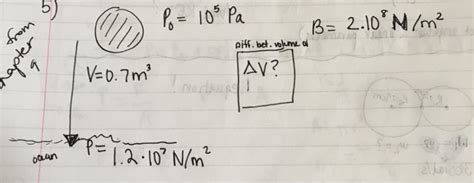 5)
from
chapter
9
P₀ = 10⁵ Pa
B = 2.10⁸ N/m²
Diff. bet. volume of
ΔV?
V = 0.7m³
ocean
P = 1.2·10⁷ N/m²